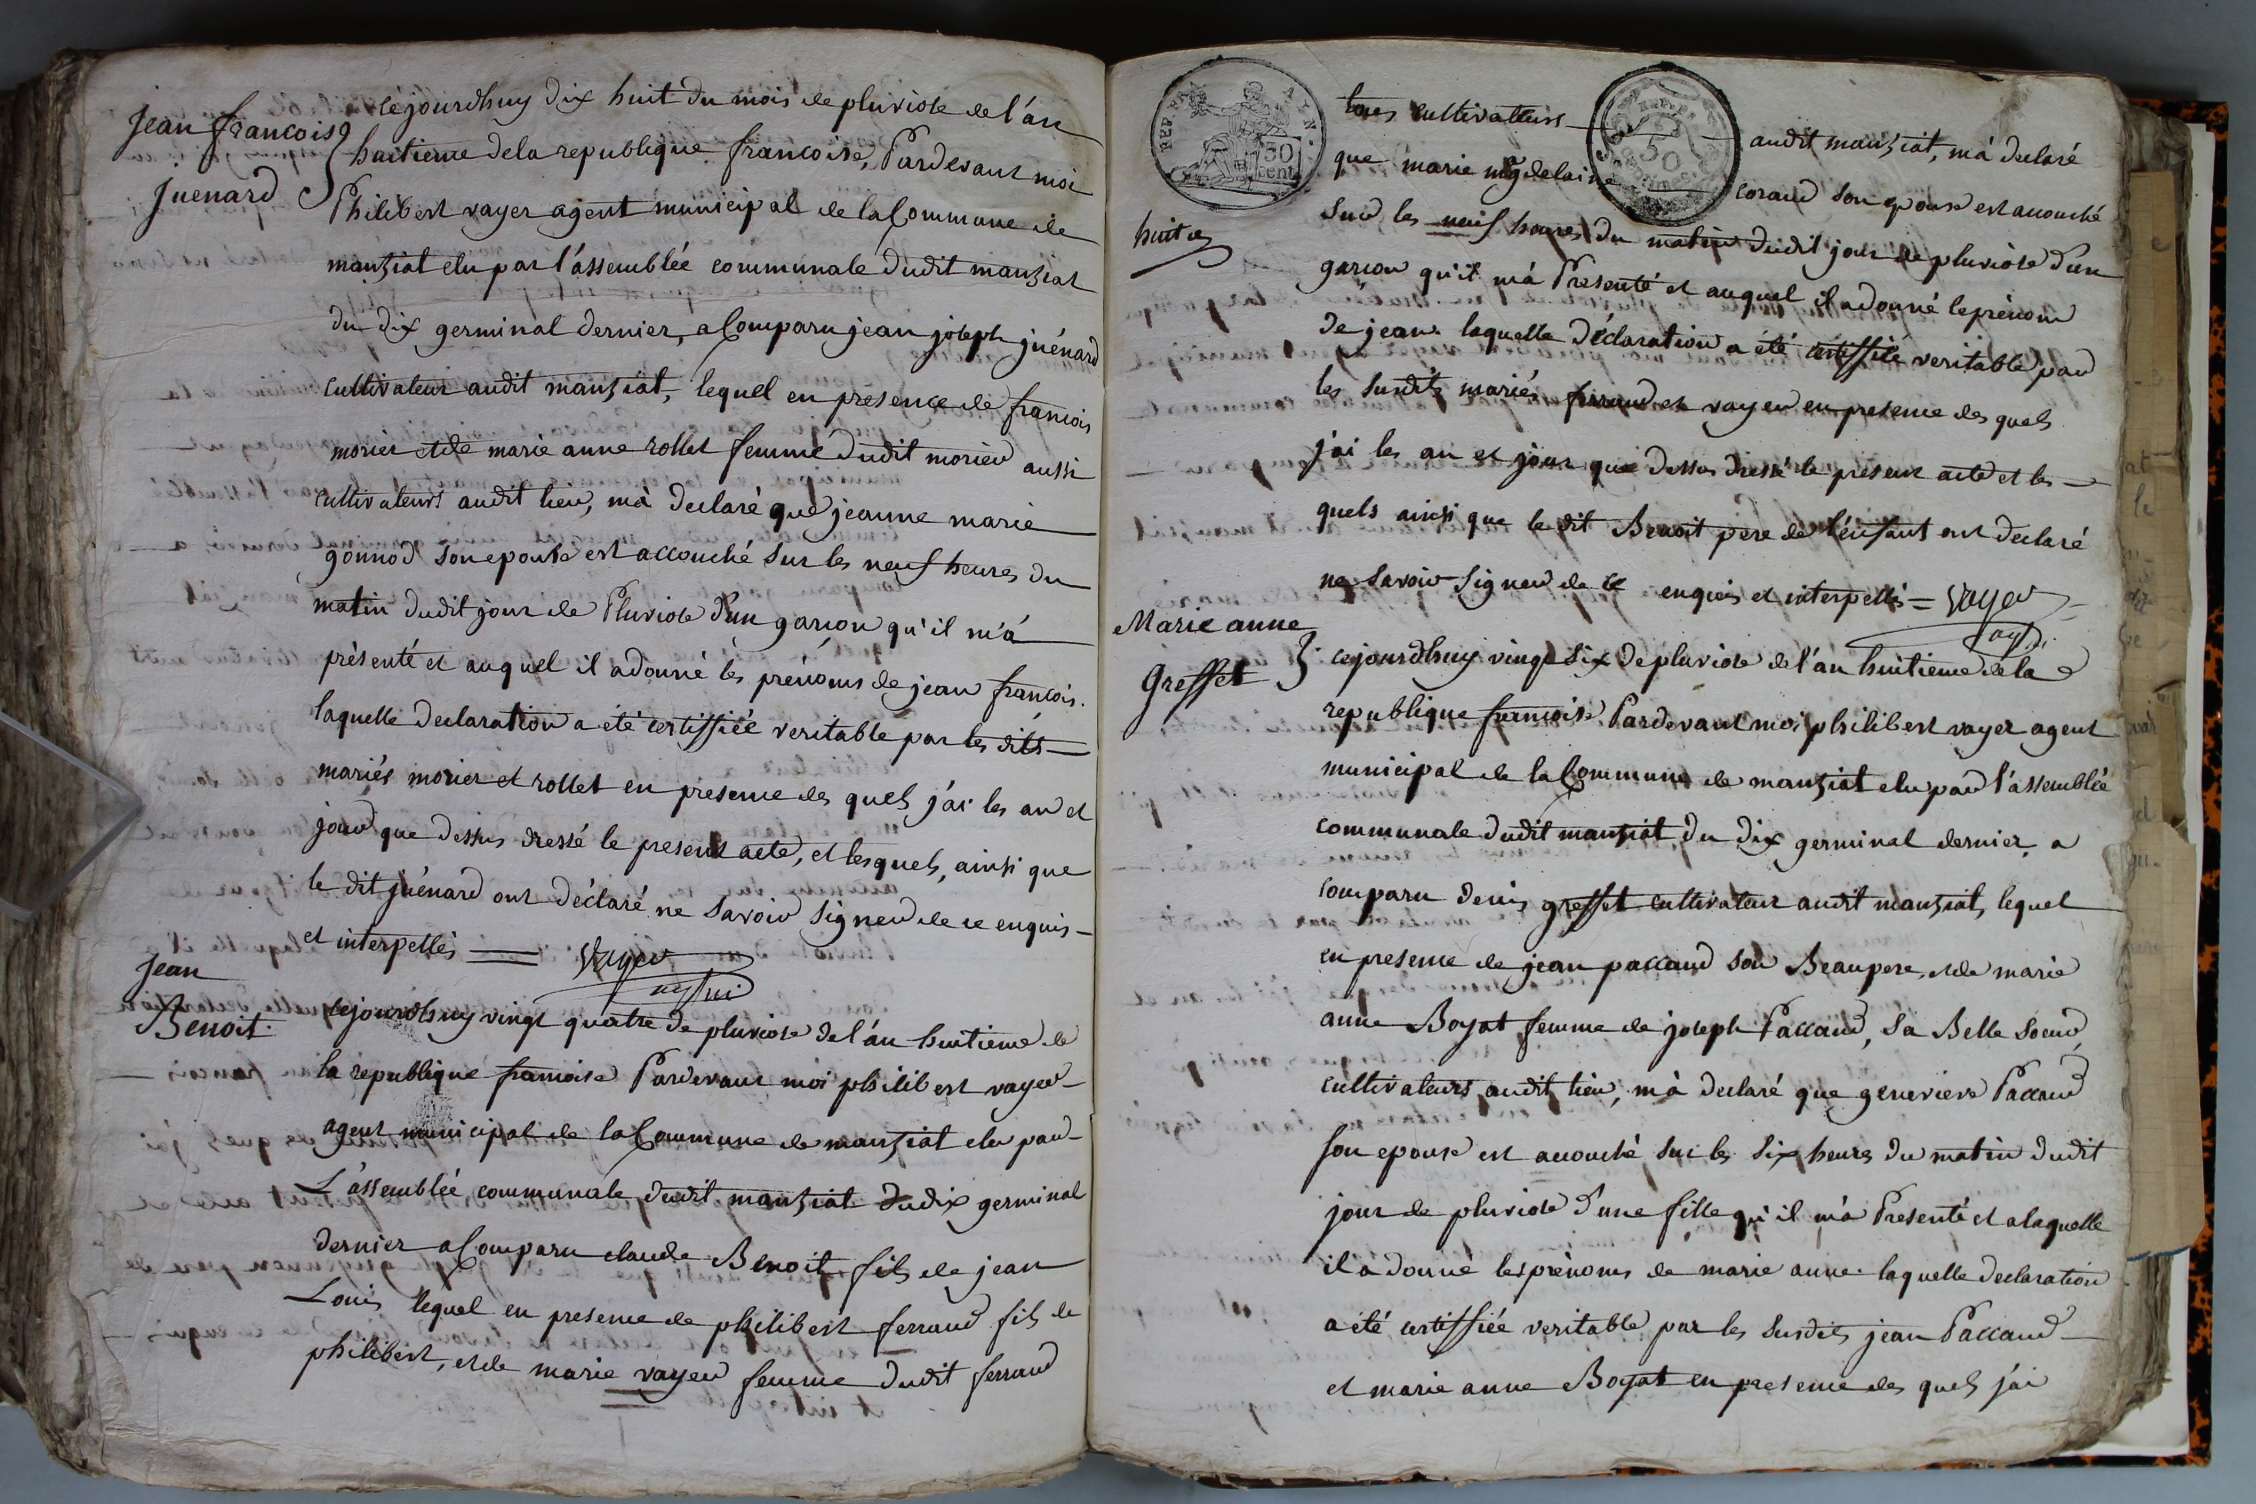 Jean francois
Juenard
cejourdhuy dix huit du mois de pluviose de l'an
huitieme dela republique francoise, Pardevant moi
Philibert vayer agent municipal de la Commune de
manziat elu par l'assemblée communale dudit manziat
du dix germinal dernier, a Comparu jean joseph juénard
cultivateur audit manziat, lequel en présence de francois
morier et de marie anne rollet femme dudit morier aussi
cultivateurs audit lieu, m'à declaré que jeanne marie
gonnod son epouse est accouché sur les neuf heures du
matin dudit jour de Pluviose d'un garçon qu'il m'à
présenté et auquel il a donné les prénoms de jean françois.
laquelle declaration a été certiffiée veritable par les dits
mariés morier et rollet en presence des quels j'ai les an et
jour que dessus dressé le present acte, et lesquels, ainsi que
le dit juénard ont déclaré ne savoir signer de ce enquis
et interpellés = vayer
Jean
Benoit
cejourdhuy vingt quatre de pluviose de l'an huitieme de
la republique francoise Pardevant moi philibert vayer
agent municipal de la Commune de manziat elu par
L'assemblée communale dudit manziat du dix germinal
dernier a Comparu claude Benoit fils de jean
Louis lequel en presence de philibert ferrand fils de
philibert, et de marie vayer femme dudit ferrand
REP. FRA. AYN.
50
cent
50
huit
tous cultivateurs audit manziat, m'à declaré
que marie magdelaine corand son epouse est accouché
sur les neuf heures du matin dudit jour de pluviose d'un
garçon qu'il m'à Presenté et auquel il a donné le prénom
de jean. laquelle déclaration a été certiffiée veritable par
les susdits mariés ferrand et vayer en presence des quels
j'ai les an et jour que dessus dressé le present acte et les
quels ainsi que le dit Benoit pere de l'enfant ont declaré
ne savoir signer de ce enquis et interpellés = vayer
Marie anne
Greffet
cejourdhuy vingt six de pluviose de l'an huitieme de la
republique francoise Pardevant moi philibert vayer agent
municipal de la Commune de manziat elu par l'assemblée
communale dudit manziat du dix germinal dernier, a
comparu denis greffet cultivateur audit manziat, lequel
en presence de jean paccaud son Beaupere, et de marie
anne Boyat femme de joseph Paccaud, sa Belle soeur,
cultivateurs audit lieu, m'à declaré que genevieve Paccaud
son epouse est accouché sur les six heures du matin dudit
jour de pluviose d'une fille qu'il m'à Presenté et a laquelle
il a donné les prénoms de marie anne. laquelle declaration
a été certiffiée veritable par les susdits jean Paccaud
et marie anne Boyat en presence des quels j'ai